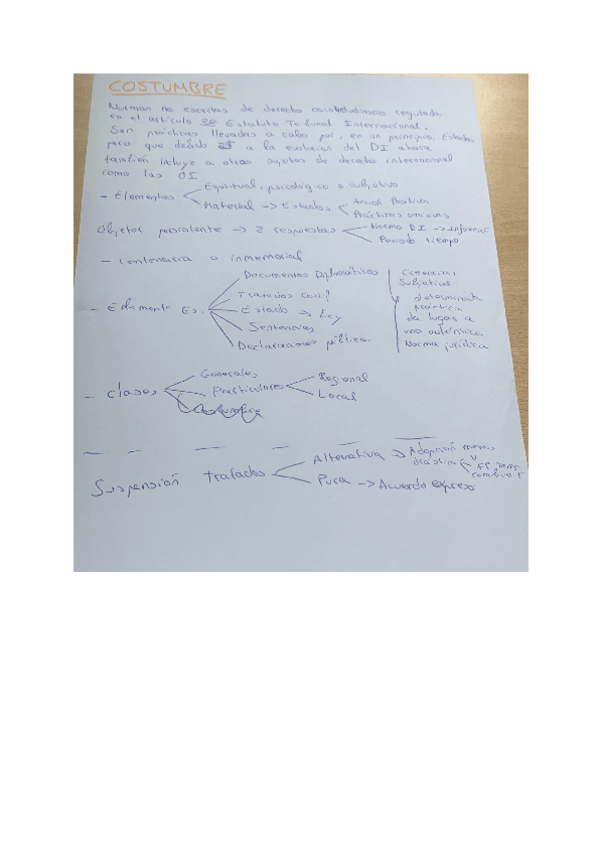 COSTUMBRE
Normas no escritas de derecho consuetudinario regulada
en el artículo 38 Estatuto Tribunal Internacional.
Son prácticas llevadas a cabo por, en un principio, Estados
pero que debido a la evolución del DI ahora
también incluye a otros sujetos de derecho internacional
como las OI
- Elementos
Espiritual, psicológico o subjetivo
Material -> Estados
Acción Positiva
Prácticas omisivas
Objetor persistente -> 2 respuestas
Norma DI ->
Periodo tiempo
- Centenaria o inmemorial
- Elemento Es.
Documentos Diplomáticos
Tratados
Estado -> Ley
Sentencias
Declaraciones públicas
Creencias
Subjetivas
determinada
práctica
da lugar a
una auténtica
Norma jurídica
- Clases
Generales
Particulares
Regional
Local
Suspensión Tratados
Alternativa ->
Pura -> Acuerdo expreso